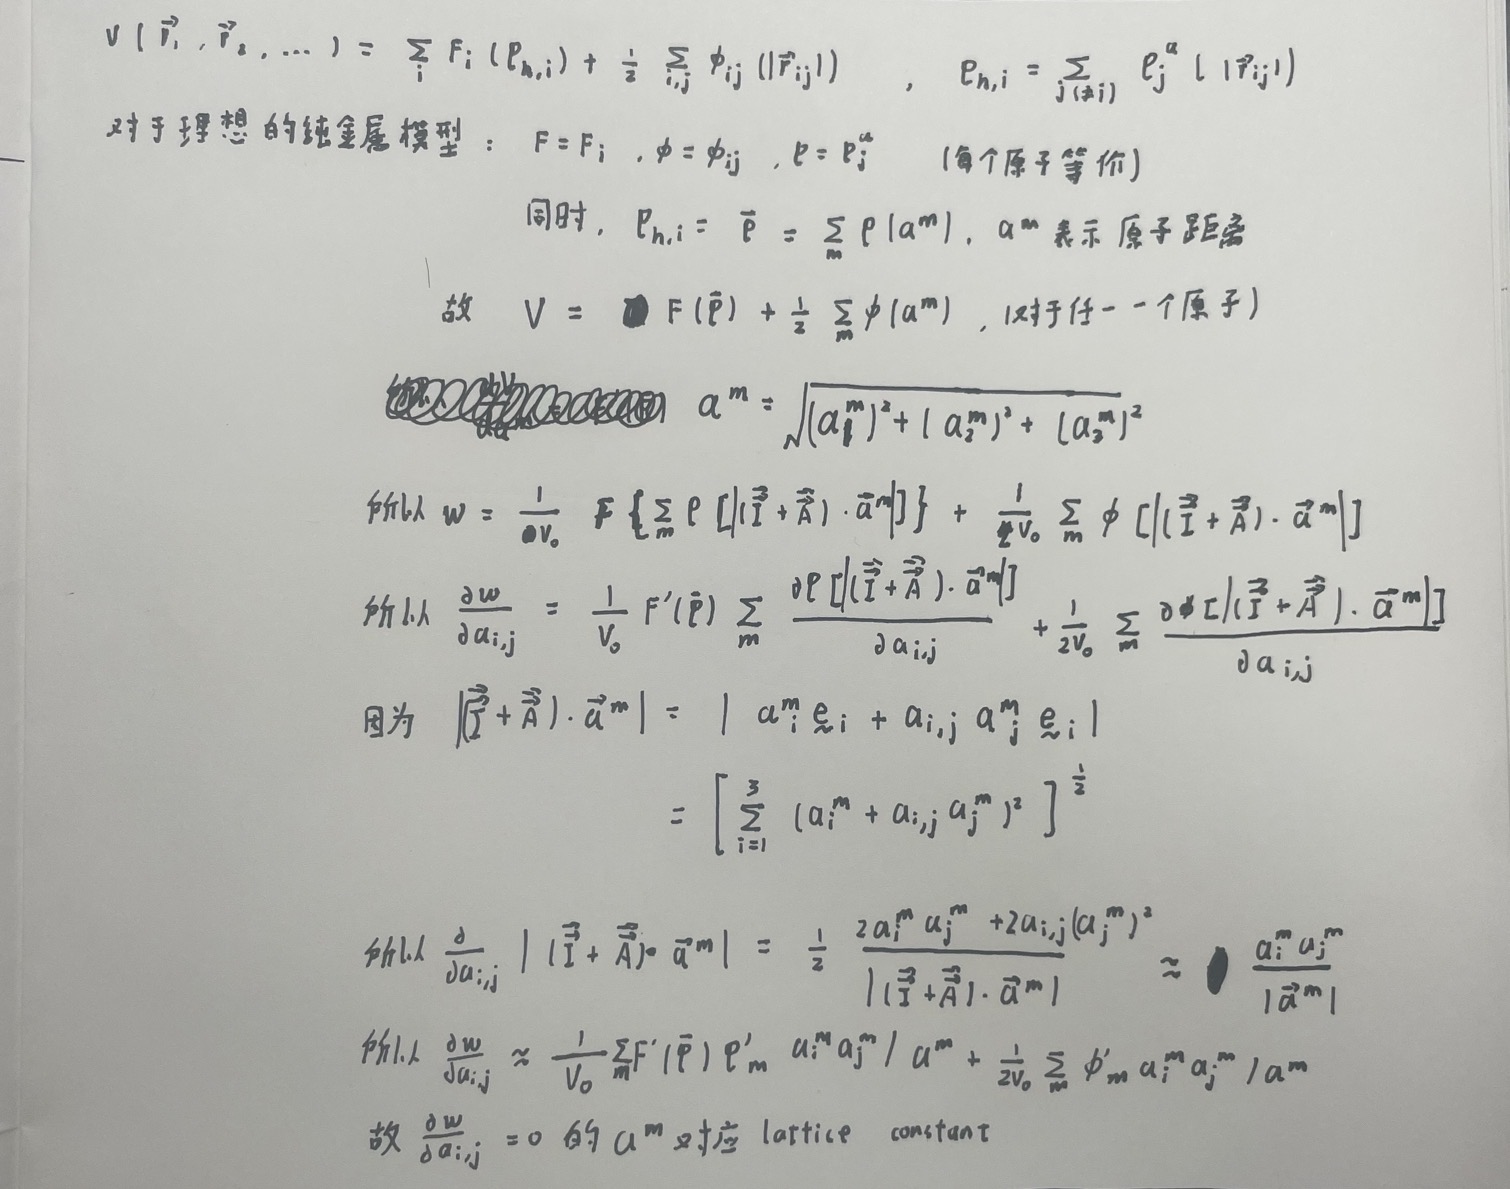 V(r⃗₁, r⃗₂, ...) = Σ_i F_i(ρ_{h,i}) + 1/2 Σ_{i,j} φ_{ij}(|r⃗_{ij}|) , ρ_{h,i} = Σ_{j(≠i)} ρ_j^a(|r⃗_{ij}|)
对于理想的纯金属模型: F = F_i , φ = φ_{ij} , ρ = ρ_j^a (每个原子等价)
同时, ρ_{h,i} = ρ̄ = Σ_m ρ(a^m), a^m 表示原子距离
故 V = F(ρ̄) + 1/2 Σ_m φ(a^m) , (对于任一一个原子)
a^m = √((a_1^m)² + (a_2^m)² + (a_3^m)²)
所以 w = 1/V₀ F{Σ_m ρ[|(I⃗⃗ + A⃗⃗)·a⃗^m|]} + 1/2V₀ Σ_m φ[|(I⃗⃗ + A⃗⃗)·a⃗^m|]
所以 ∂w/∂a_{i,j} = 1/V₀ F'(ρ̄) Σ_m ∂ρ[|(I⃗⃗ + A⃗⃗)·a⃗^m|]/∂a_{i,j} + 1/2V₀ Σ_m ∂φ[|(I⃗⃗ + A⃗⃗)·a⃗^m|]/∂a_{i,j}
因为 |(I⃗⃗ + A⃗⃗)·a⃗^m| = | a_i^m ḛ_i + a_{i,j} a_j^m ḛ_i |
= [Σ_{i=1}^3 (a_i^m + a_{i,j} a_j^m)²]^{1/2}
所以 ∂/∂a_{i,j} |(I⃗⃗ + A⃗⃗)·a⃗^m| = 1/2 (2a_i^m a_j^m + 2a_{i,j}(a_j^m)²)/|(I⃗⃗ + A⃗⃗)·a⃗^m| ≈ a_i^m a_j^m/|a⃗^m|
所以 ∂w/∂a_{i,j} ≈ 1/V₀ Σ_m F'(ρ̄) ρ'_m a_i^m a_j^m / a^m + 1/2V₀ Σ_m φ'_m a_i^m a_j^m / a^m
故 ∂w/∂a_{i,j} = 0 的 a^m 对应 lattice constant